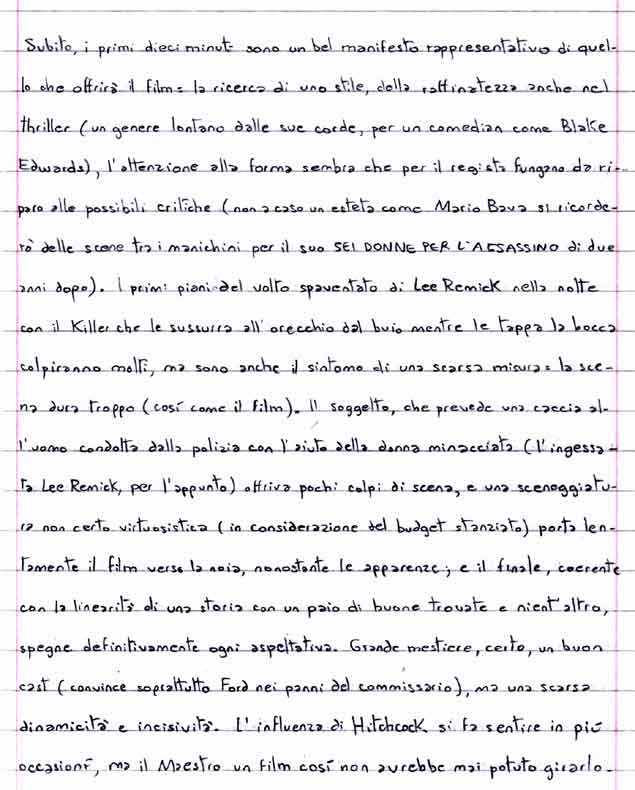 Subito, i primi dieci minuti sono un bel manifesto rappresentativo di quel-
lo che offrirà il film: la ricerca di uno stile, della raffinatezza anche nel
thriller (un genere lontano dalle sue corde, per un comedian come Blake
Edwards), l'attenzione alla forma sembra che per il regista fungano da ri-
paro alle possibili critiche (non a caso un esteta come Mario Bava si ricorde-
rà delle scene tra i manichini per il suo SEI DONNE PER L'ASSASSINO di due
anni dopo). I primi piani del volto spaventato di Lee Remick nella notte
con il Killer che le sussurra all'orecchio dal buio mentre le tappa la bocca
colpiranno molti, ma sono anche il sintomo di una scarsa misura: la sce-
na dura troppo (così come il film). Il soggetto, che prevede una caccia al-
l'uomo condotta dalla polizia con l'aiuto della donna minacciata (l'ingessa-
ta Lee Remick, per l'appunto) offriva pochi colpi di scena, e una sceneggiatu-
ra non certo virtuosistica (in considerazione del budget stanziato) porta len-
tamente il film verso la noia, nonostante le apparenze; e il finale, coerente
con la linearità di una storia con un paio di buone trovate e nient'altro,
spegne definitivamente ogni aspettativa. Grande mestiere, certo, un buon
cast (convince soprattutto Ford nei panni del commissario), ma una scarsa
dinamicità e incisività. L'influenza di Hitchcock si fa sentire in più
occasioni, ma il Maestro un film così non avrebbe mai potuto girarlo.